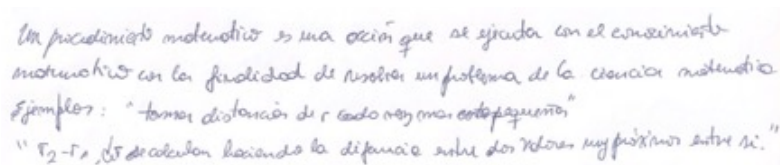 Un procedimiento matematico es una acción que se ejecuta con el conocimiento
matematico con la finalidad de resolver un problema de la ciencia matematica
Ejemplos: "tomar distancias de r cada vez mas pequeñas"
"r2-r1, dr se calculan haciendo la diferencia entre dos valores muy próximos entre si."